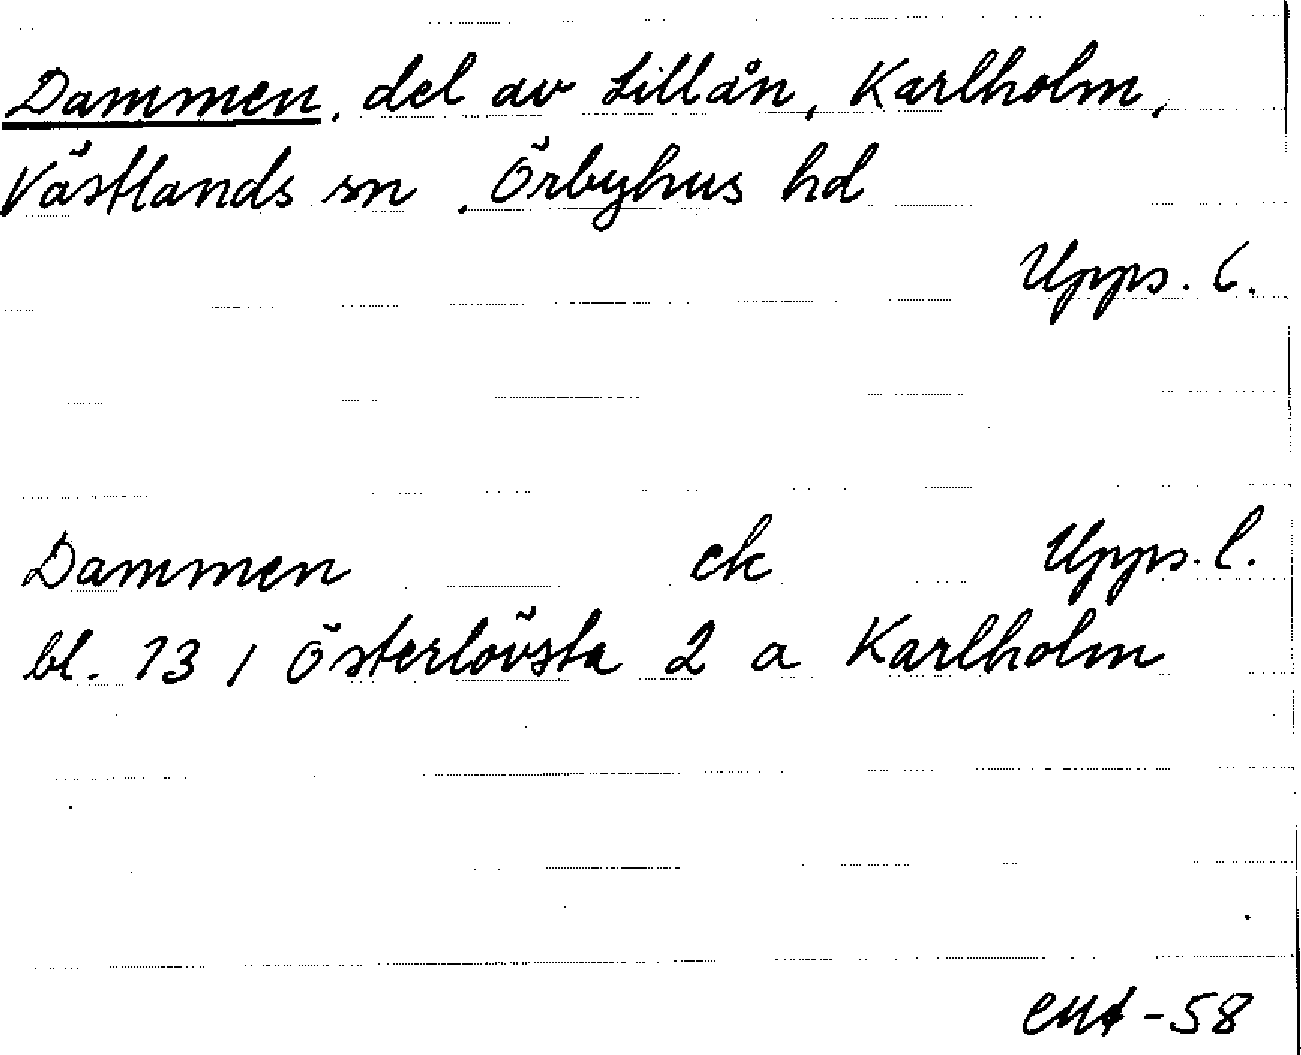 Dammen, del av Lillån, Karlholm,
Västlands sn, Örbyhus hd
Upps. l.
Dammen ek Upps. l.
bl. 13, Österlövsta 2 a Karlholm
-58